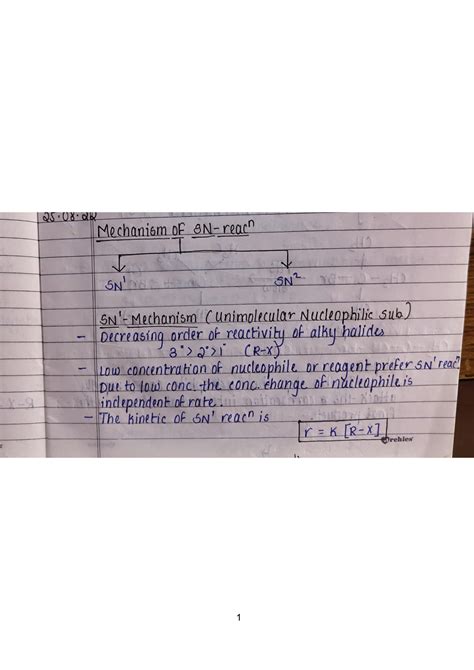 25.08.22
Mechanism of SN-reacⁿ
SN¹ SN²
SN¹-Mechanism (Unimolecular Nucleophilic Sub.)
- Decreasing order of reactivity of alky halides
3°>2°>1° (R-X)
- Low concentration of nucleophile or reagent prefer SN¹ reacⁿ
Due to low conc. the conc. change of nucleophile is
independent of rate.
- The kinetic of SN¹ reacⁿ is
r = K [R-X]
1